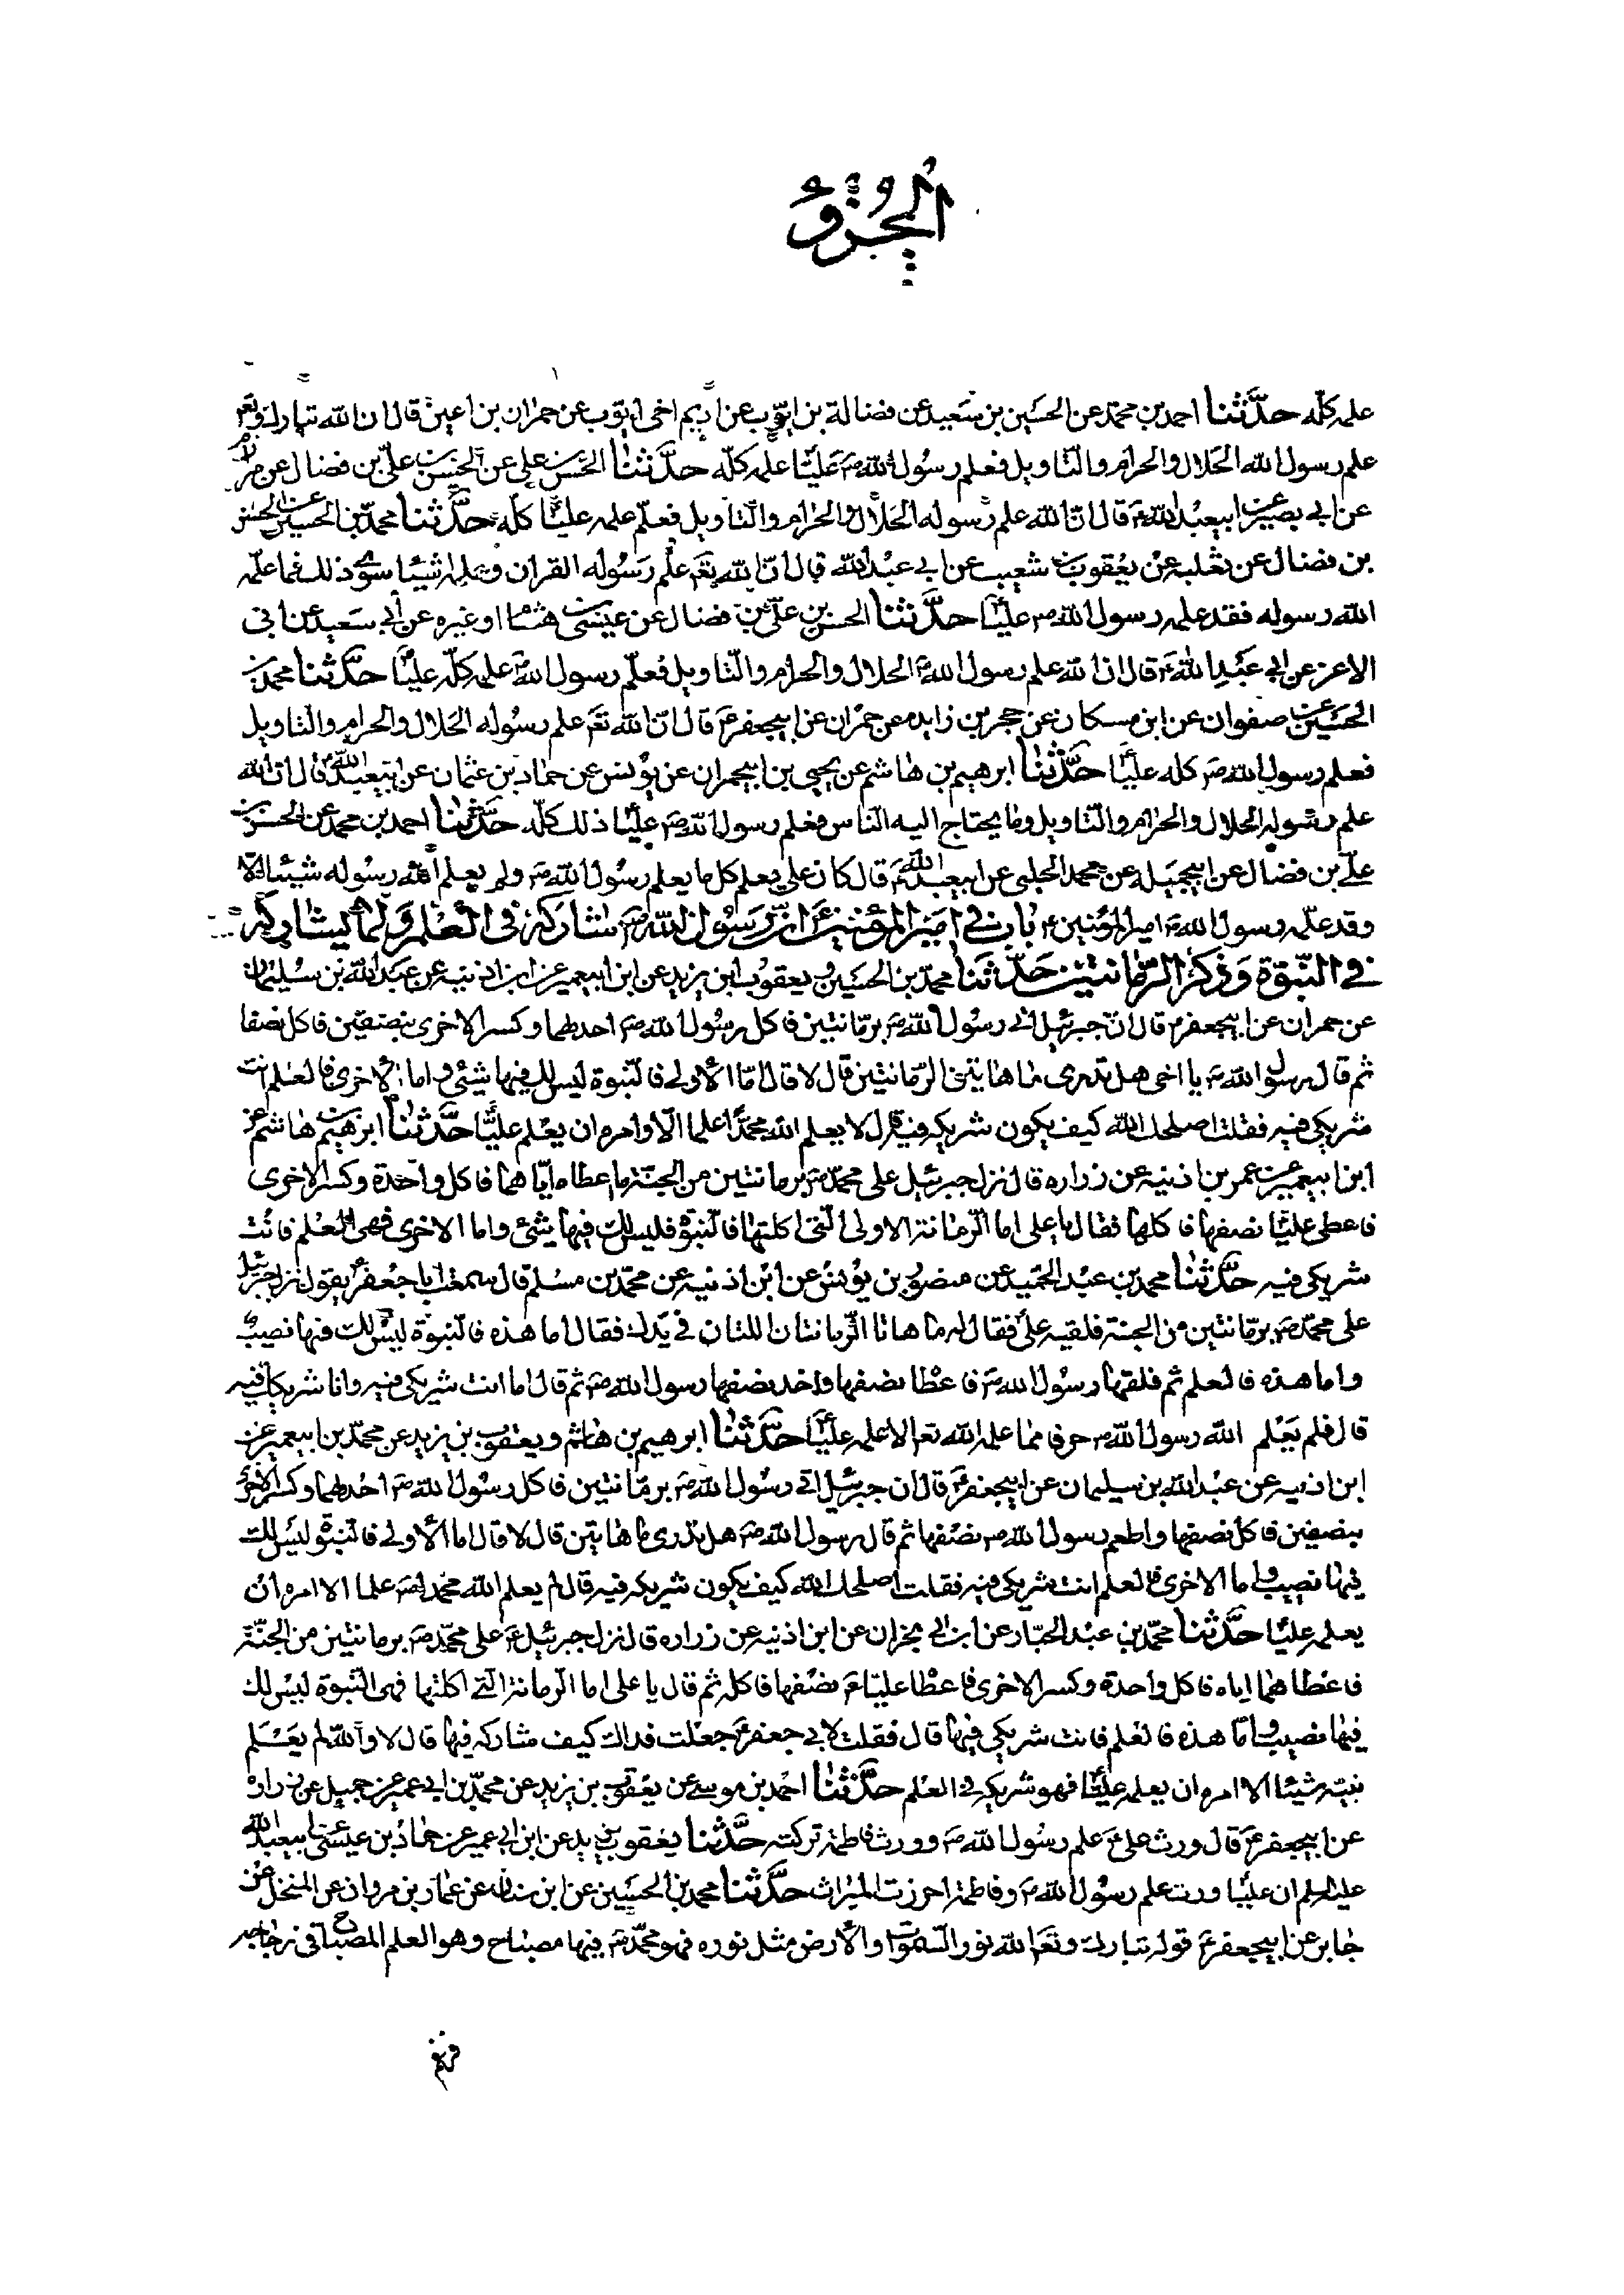 الجزؤ
علمه كلّه حدّثنا احمد بن محمّد عن الحسَين بن سَعيد عن فضالة بن ايّوب عن ابيم اخى ايّوب عن حمران بن اعين قال ان الله تبارك وتع
علم رسول الله الحَلال والحرام والتّاويل فعلم رسُول الله صَ عَليّا علمه كلّه حدّثنا الحسَن بن على عن الحسَن بن علىّ بن فضال عن
عن ابى بصير عن ابيعبْد الله عَ قال انّ الله علم رسوله الحَلال والحرَام والتّاويل فعلّم علمه عليّا كلّه حدَّثنا محمّد بن الحسين عن الحسن
بن فضال عن ثعْلبه عنْ يعْقوب بن شعيب عن ابى عبْد الله قال انّ الله تعَ علّم رسُوله القران وعلمه شيئا سوى ذلك فما علّم
الله رسوله فقد علمه رسول الله صَ عليّا حدَّثنا الحسن بن علىّ بن فضال عن عيسَى بن هشام او غيره عن ابى سَعيد عن ابى
الاعز عن ابى عبْد الله عَ قال انّ الله علم رسول الله صَ الحلال والحرام والتّاويل فعلّم رسول الله علمه كلّه عليّا حدّثنا محمد بن
الحسَين عن صفوان عن ابن مسكان عن حجر بن زايده عن حمْران عن ابيجعفر عَ قال انّ الله تعَ علم رسُوله الحَلال والحرام والتاويل
فعلم رسول الله صَ كله عليّا حدَّثنا ابرهيم بن هاشم عن يحيى بن ابيعمران عن يوُنس عن حماد بن عثمان عن ابيعبْد الله قال ان الله
علم رسُوله الحلال والحرام والتّاويل وما يحتاج اليه النّاس فعلم رسول الله صَ عليّا ذلك كلّه حدّثنا احمد بن محمد عن الحسن بن
علىّ بن فضال عن ابيجميله عن محمد الحلبى عن ابيعبد الله عَ قال كان على يعلم كل ما يعلم رسُول الله صَ ولم يعلم الله رسُوله شيئا الا
وقد علّمه رسول الله صَ امير المؤمنين ع باب فى اميَر المؤمنين عَ انّ رسُول الله صَ شاركهُ فى العلم ولم يشاركه
فى النّبوّة وَذكر الرمّانتين حَدّثنا محمّد بن الحسَين ويعقوب ابن يزيد عن ابن ابيعمير عن ابن اذنيه عن عبد الله بن سليمان
عن حمران عن ابيجعفر ع قال انّ جبرئيل اتى رسُول الله صَ برمّانتين فاكل رسُول الله صَ احدهما وكسر الاخرى بنصفين فاكل نصفا
ثم قال رسول الله صَ يا اخى هل تدرى ما هاتين الرّمانتين قال لا قال امّا الاولى فالنّبوة ليس لك فيها شئى واما الاخرى فالعلم انت
شريكى فيه فقلت اصلحك الله كيف يكون شريكه فيه قال لا يعلم الله محمّدا علما الّا وامره ان يعْلم عليّا حدَّثنا ابرهيم بن هاشم عن
ابن ابيعمير عن عمر بن اذنيه عن زراره قال نزل جبرئيل على محمّد صَ برمانتين من الجنّة ما عطاه ايّاهما فاكل واحدة وكسر الاخرى
فاعطى عليّا نصفها فاكلها فقال يا على اما الرّمانة الاولى التى اكلتها فالنّبوة فليس لك فيها شئى واما الاخرى فهى العْلم فانت
شريكى فيه حدَّثنا محمد بن عبْد الحَميد عن منصُور بن يوُنس عن ابن اذنيه عن محمّد بن مسْلم قال سمعْت ابا جعْفر ع يقول نزل جبرئيل
على محمّد صَ برمّانتين من الجنة فلقيه علىّ فقال له ما هاتا الرّمانتان اللتان فى يدك فقال اما هذه فالنبوّة ليسْ لك فيها نصيب
واما هذه فالعلم ثم فلقها رسُول الله صَ فاعْطا نصفها واخذ نصْفها رسول الله صَ ثم قال اما انت شريكى فيه وانا شريكك فيه
قال فلم يَعْلم الله رسول الله صَ حرفا مما علمه الله تعالى الا علمه عليّا حدَّثنا ابرهيم بن هاشم ويعقوب بن يزيد عن محمّد بن ابيعمير عن
ابن اذنيه عن عبْد الله بن سيلمان عن ابيجعفر عَ قال ان جبرئيل اتى رسُول الله صَ برمّانتين فاكل رسُول الله صَ احْدهما وكسَر الاخرى
بنصفين فاكل نصفها واطعم رسول الله صَ نصْفها ثم قال رسول الله صَ هل تدْرى ما هاتين قال لا قال اما الأولى فالنبوّة ليسَ لك
فيها نصيب واما الاخرى فالعلم انت شريكى فيه فقلت اصلحك الله كيف يكون شريكه فيه قال لم يعلم الله محمدا صَ علما الا امره انْ
يعلمه عليّا حدَّثنا محمّد بن عبْد الجبّار عن ابن ابى نجران عن ابن اذنيه عن زراره قال نزل جبرئيل عَ على محمّد صَ برمانتين من الجنّة
فاعْطاهما اياه فاكل واحدة وكسر الاخرى فاعْطا عليّا عَ نصْفها فاكله ثم قال يا على اما الرمانة الّتى اكلتها فهى النّبوة ليسْ لك
فيها نصيب وامّا هذه فالعْلم فانت شريكى فيها قال فقلت لابى جعفر عَ جعْلت فداك كيف مشاركه فيها قال لا والله لم يعَْلم
نبيّه شيئا الا امره ان يعلمه عليّا فهو شريكه فى العْلم حدَّثنا احْمد بن موسى عن يعْقوب بن يزيد عن محمّد بن ابى عمير عن جميل عن زراره
عن ابيجعفر عَ قال ورث علىّ عَ علم رسُول الله صَ وورث فاطمة تركته حدّثنا يعْقوب بن يزيد عن ابن ابى عمير عن حمّاد بن عيسَى عن ابيعبد الله
عليه السلم ان عليّا ورث علم رسُول الله صَ وفاطمة احرزت الميْراث حدَّثنا محمد بن الحسَين عن ابن سنان عن عمّار بن مروان عن المنخل عنْ
جابر عن ابيجعفر عَ قوله تبارك وتعَ الله نور السّموات والأرض مثل نوره فهو محمّد صَ فيها مصباح وهو العلم المصباح فى زجاجه